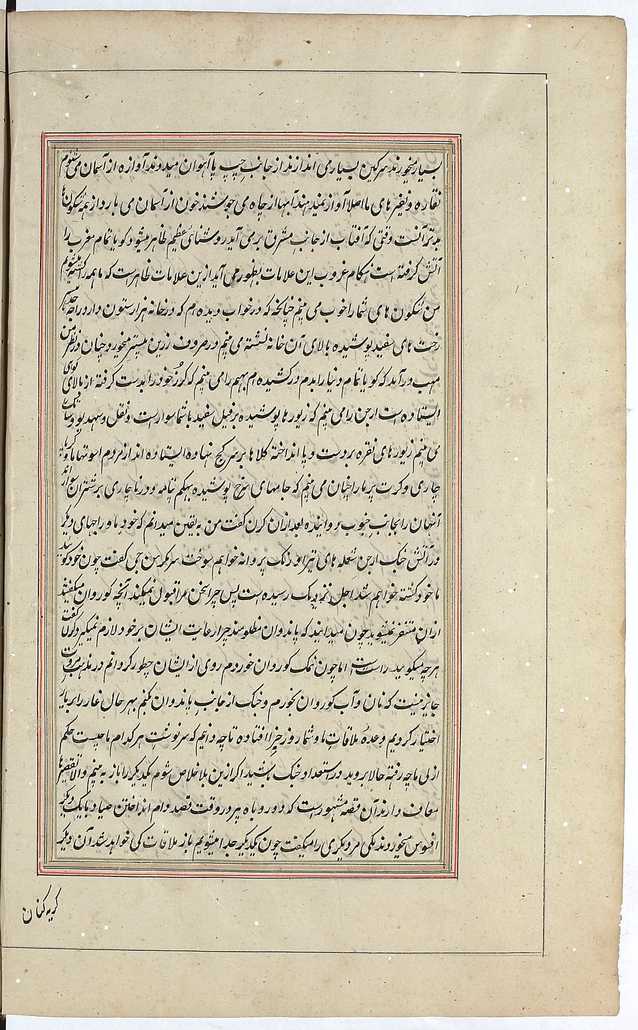 بسیار میخورند سرکین بسیار می اندازند از جانب چپ پا آهوان میدوند آوازه از آسمان می شنوم
نقاره و نفیرهای ما اصلا آواز نمیدهند آبها از چاه می جوشند خون از آسمان می بارد از همه شکون‌ها
بدتر آنست وقتی که آفتاب از جانب مشرق بر می آید روشنای عظیم ظاهر میشود کویا تمام مغرب را
آتش گرفته است هنکام غروب این علامات بطور می آید ازین علامات ظاهر است که ما همه کشته میشویم
من شکون های شما را خوب می بینم چنانچه که در خواب دیده ام که در خانه هزار ستون دارد راجه جدهشتر
رخت های سفید پوشیده بالای آن خانه نشسته می بینم در ظروف زرین میخورد چنان در نظر من
می در آمد که کویا تمام دنیا را بدم در کشیده بهیم را می بینم که گرز خود را بدست گرفته از بالای کوهی
ایستاده است ارجن را می بینم که زیورها پوشیده بر فیل سفید با شما سوار است و نقل و سهدیو و
می بینم زیورهای نقره بر دست و پا انداخته کلاها بر سر کج نهاده ایستاده اند از مردم اسوتهاما و کرپا
چاری و کرت برما را چنان می بینم که جامهای سرخ پوشیده بهیکم پتامه و درناچاری بر شتران سوار اند
آنتهان را بجانب جنوب بر وانیده بعد از آن کرن گفت من به یقین میدانم که خود ما و راجهای دیکر
در آتش جنک ارجن شعله های تیر او زنک پروانه خواهم سوخت سرکرسن جی گفت چون خود
ما خود کشته خواهم شد اجل نزدیک رسیده است پس چرا سخن مرا قبول نمیکند آنچه کوروان میکفتند
ازان متنفر نمیشوید چون میدانید که پاندوان مظلومند چرا رعایت ایشان بر خود لازم نمیکیرد کرن گفت
هرچه میکویید راست است اما چون نمک کوروان خوردم روی از ایشان چطور کردانم در مذهب مروت
جایز نیست که نان و آب کوروان بخورم و جنک از جانب پاندوان بکنم بهر حال عار را بر
اختیار کردیم وعدهٔ ملاقات ما و شما روز جزا افتاده تا چه دانیم که سرنوشت هر کدام ما چیست حکم
ازلی ما چه رفته حالا بروید در استعداد جنک بشید اگر ازین بلا خلاص شوم یکدیکر را باز به بینم والا تقصیرها
معاف دارند آن قصه مشهور است که دو روباه پیر در وقت قصد دام انداختن صیاد با یک دیکر
افسوس میخوردند یکی مر دیکری را میکفت چون یکدیکر جدا میشویم باز ملاقات کی خواهد شد آن دیکر
کریه کنان